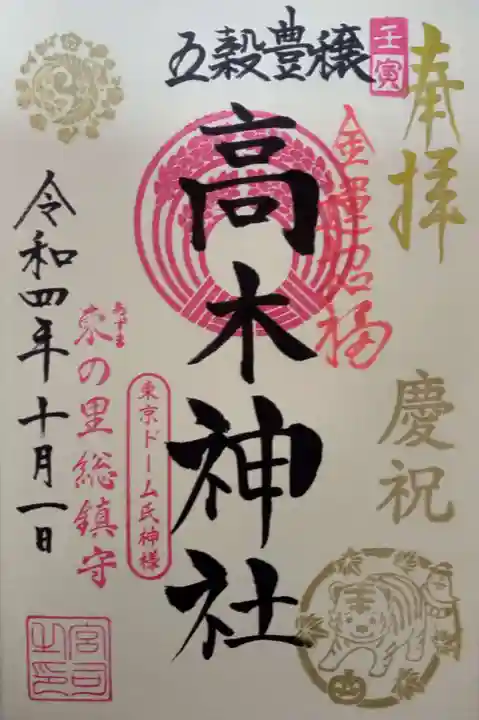 奉拝
慶祝
壬寅
金運招福
五穀豊穣
高木神社
東京ドーム氏神様
あずま
東の里総鎮守
令和四年十月一日
宮司之印